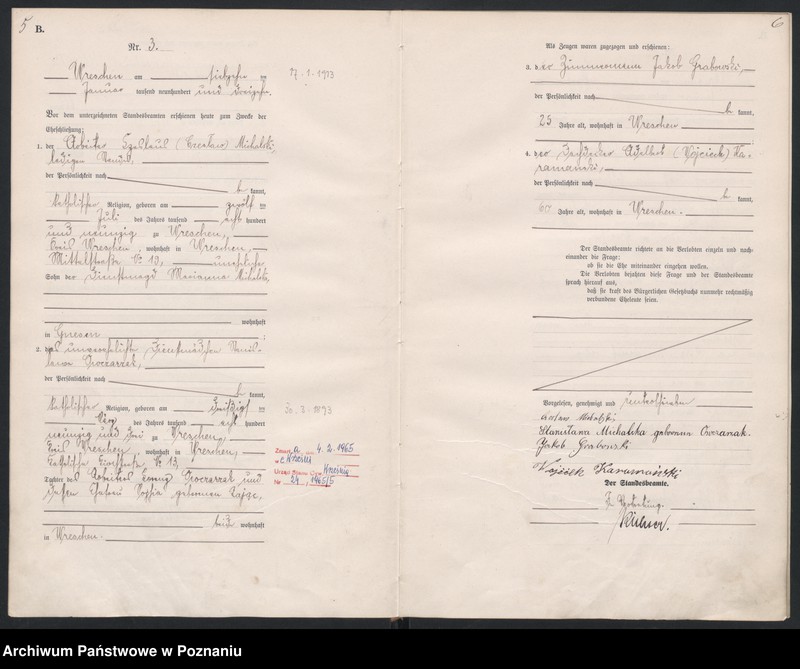 5
B.
Nr. 3.
Wreschen am siebzehn ten
Januar tausend neunhundert und dreizehn.
17.1.1913
Vor dem unterzeichneten Standesbeamten erschienen heute zum Zwecke der
Eheschließung:
1. der Arbeiter (Czesław) Michalski,
ledigen Standes,
der Persönlichkeit nach
kannt,
katholischer Religion, geboren am zwölf ten
Juli des Jahres tausend acht hundert
und neunzig zu Wreschen,
Kreis Wreschen, wohnhaft in Wreschen,
No 10, unehelicher
Sohn der Dienstmagd Marianna Michalski,
wohnhaft
in Gnesen
2. das unverehelichte Dienstmädchen Stanis-
lawa
der Persönlichkeit nach
kannt,
katholischer Religion, geboren am dreißigs ten
März des Jahres tausend acht hundert
neunzig und drei zu Wreschen,
30.3.1893
Kreis Wreschen, wohnhaft in Wreschen,
No 13,
Tochter des Arbeiters und
Sophia geborenen
wohnhaft
in Wreschen.
4.2.1965
Nr 24, 1965/5
6
Als Zeugen waren zugezogen und erschienen:
3. der Zimmermann Jakob Grabowski,
der Persönlichkeit nach
kannt,
25 Jahre alt, wohnhaft in Wreschen
4. der Adalbert (Wojciech) Ka-
ramanski,
der Persönlichkeit nach
kannt,
60 Jahre alt, wohnhaft in Wreschen.
Der Standesbeamte richtete an die Verlobten einzeln und nach-
einander die Frage:
ob sie die Ehe miteinander eingehen wollen.
Die Verlobten bejahten diese Frage und der Standesbeamte
sprach hierauf aus,
daß sie kraft des Bürgerlichen Gesetzbuchs nunmehr rechtmäßig
verbundene Eheleute seien.
Vorgelesen, genehmigt und unterschrieben
Michalski
Stanisława Michalska geborenna Owczarzak.
Jakob Grabowski
Wojciek Karamański
Der Standesbeamte.
In Vertretung.
Archiwum Państwowe w Poznaniu